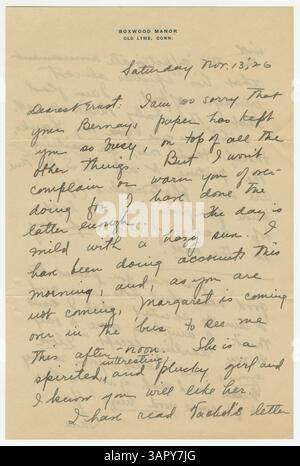 BOXWOOD MANOR
OLD LYME, CONN.
Saturday Nov. 13, '26
Dearest Ernst: I am so sorry that
your Bernays paper has kept
you so busy, on top of all the
other things. But I won't
complain or warn you of over-
doing for I have done the
latter enough. The day is
mild with a hazy sun. I
have been doing accounts this
morning, and, as you are
not coming, Margaret is coming
over in the 'bus to see me
this after-noon. She is a
spirited, interesting and plucky girl and
I know you will like her.
I have read Vachel's letter
alamy
Image ID: 3APY7JG
www.alamy.com